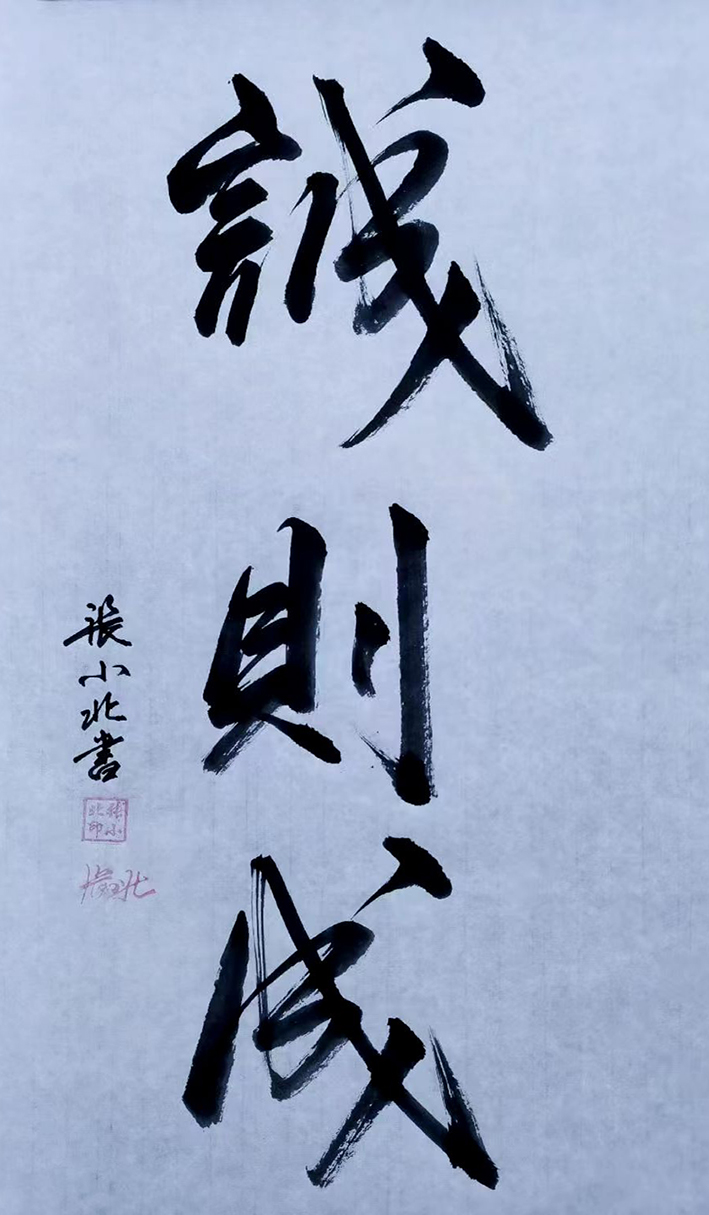 誠則成
張小北書
張小北印